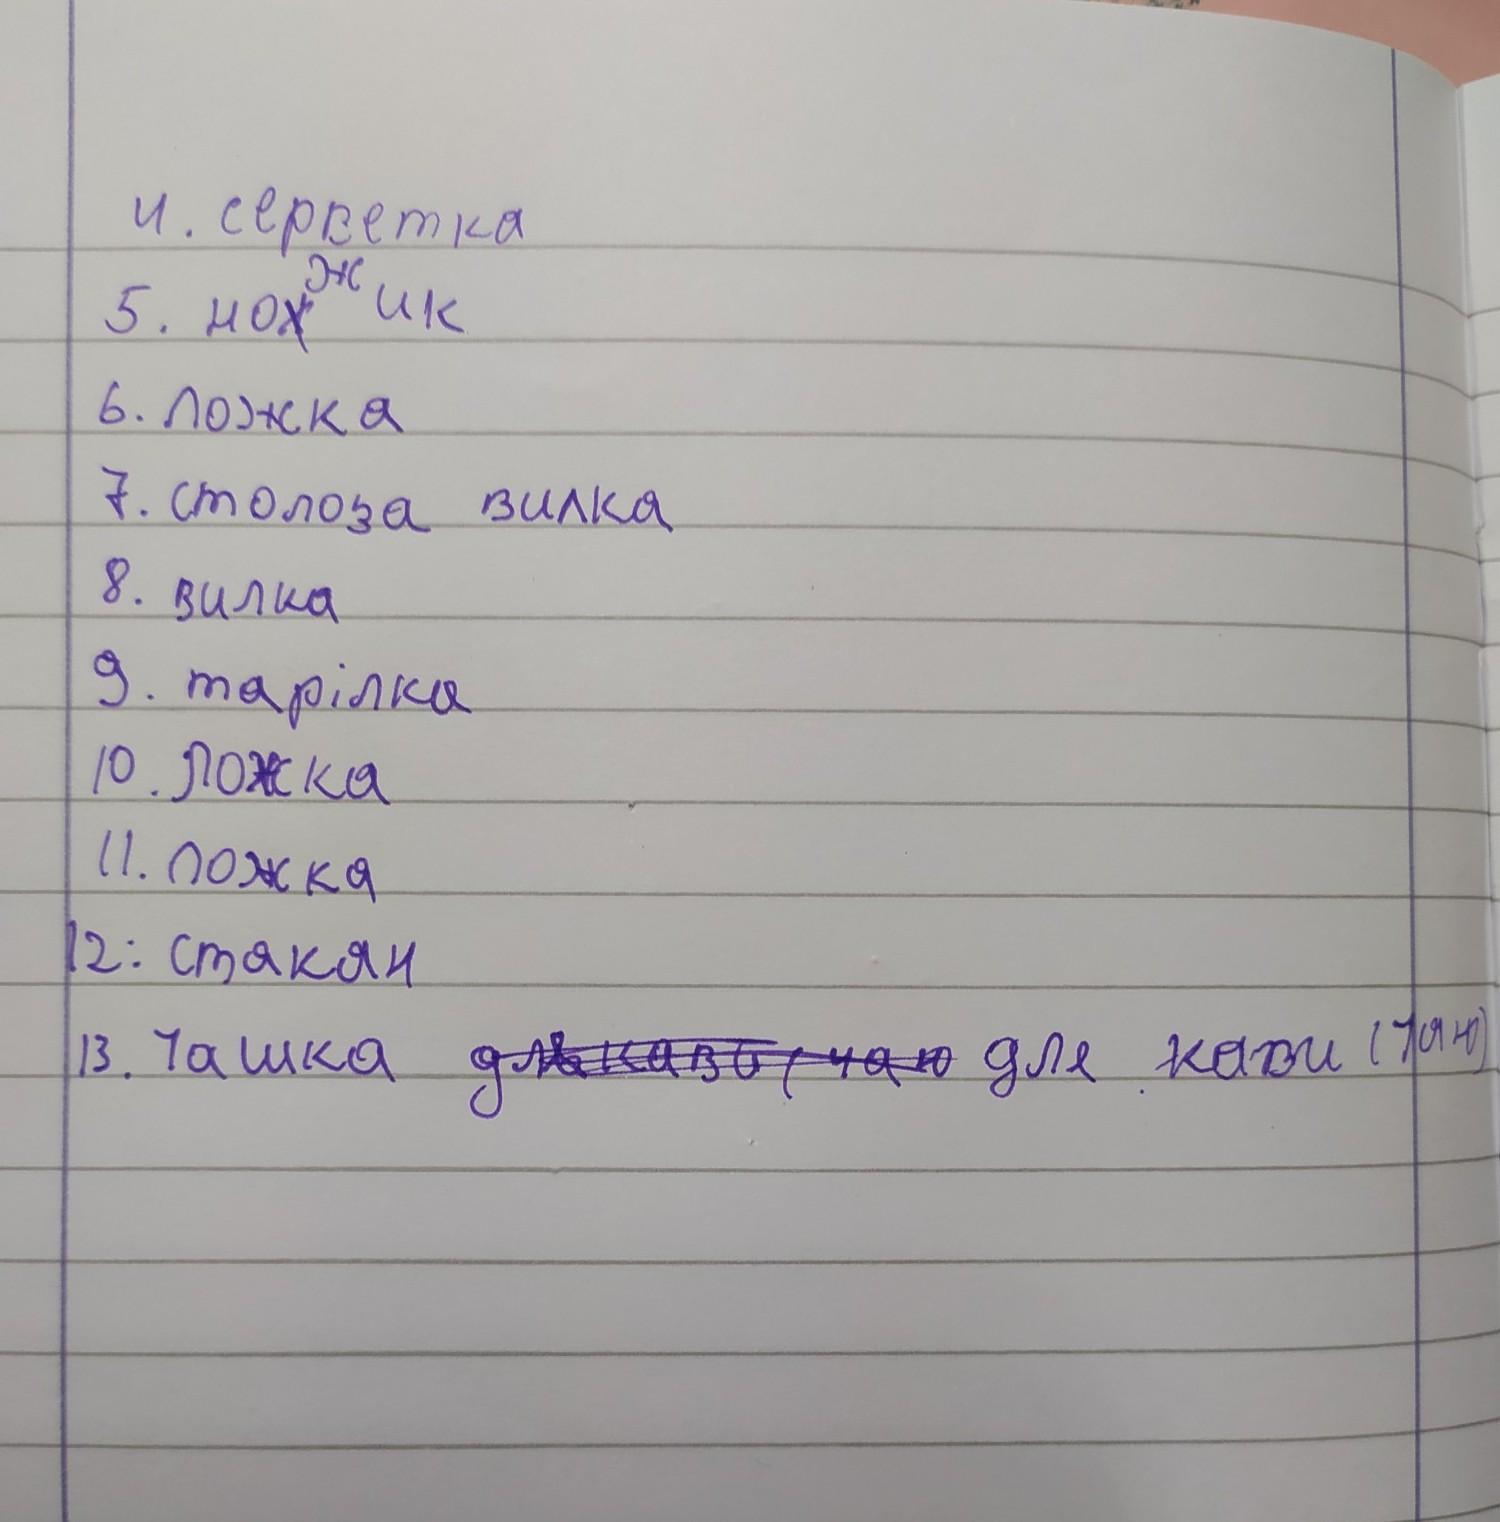 4. серветка
5. ножик
6. ложка
7. столова вилка
8. вилка
9. тарілка
10. ложка
11. ложка
12: стакан
13. Чашка для кави (чаю)